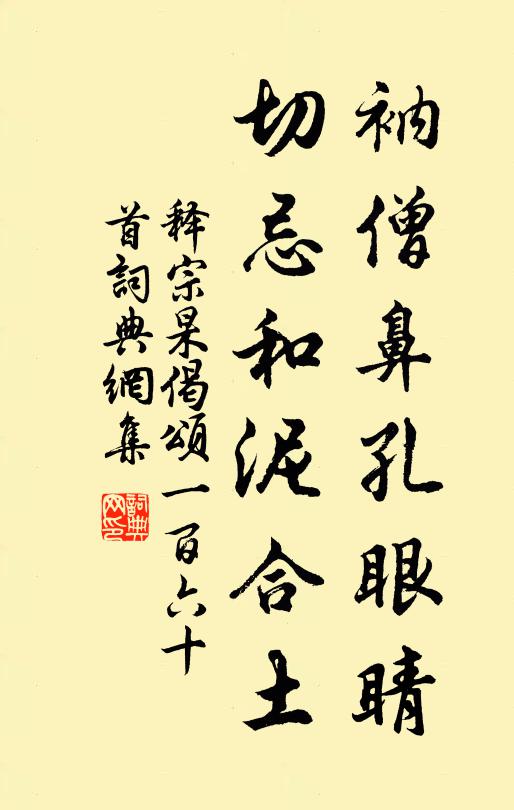 衲僧鼻孔眼睛
切忌和泥合土
释宗杲偈頌一百六十
首詞典網集
詞典网印